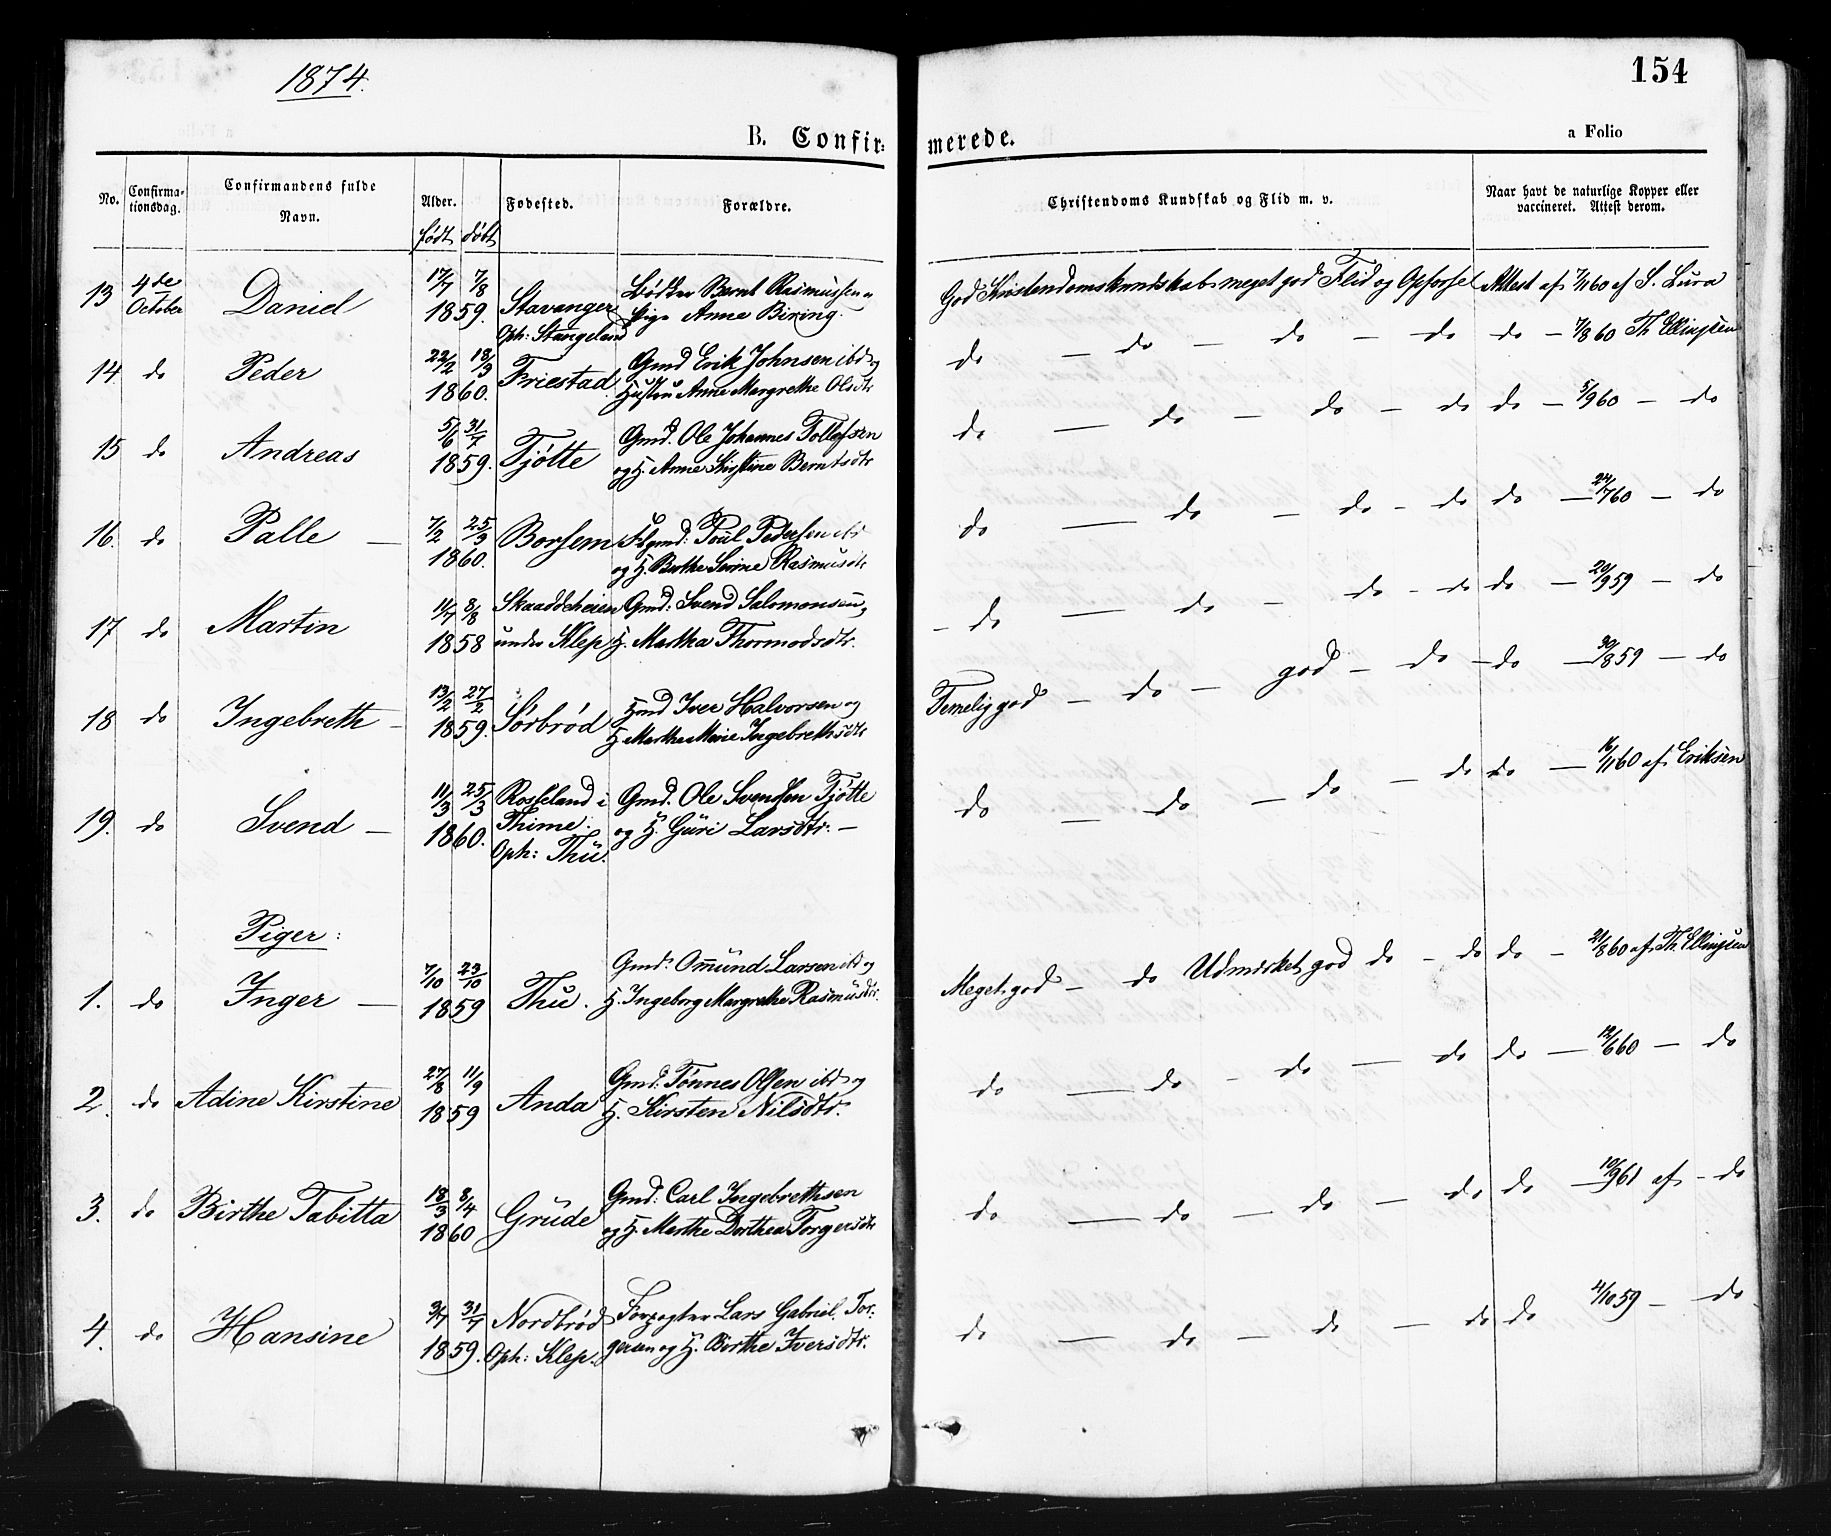 1874.
154
B. Confir=
merede.
a Folio
No.
Confirma-
tionsdag.
Confirmandens fulde
Navn.
Alder.
født
døbt
Fødested.
Forældre.
Christendoms Kundskab og Flid m. v.
Naar havt de naturlige Kopper eller
vaccineret. Attest derom.
13 4de October Daniel 17/7 7/8 1859. Stavanger Oph: Stangeland
Bødker Bernt Rasmussen og
Pige Anne Biring.
God Kristendomskundskab meget god Flid og Opførsel Attest af 7/11 60 af S. Lura
14 do Peder 22/2 18/3 1860. Friestad
Gmd Erik Johnsen ibd og
Hustru Anne Margrethe Olsdtr
do — do — do — do do — 7/8 60 Th Ellingsen
15 do Andreas 5/6 31/7 1859. Tjøtte
Gmd. Ole Johannes Tollefsen
og H. Anne Kirstine Berntsdtr
do — do — do — do do — 5/9 60 — do
16. do Palle — 7/2 25/3 1860. Borsem
Gmd: Poul Pedersen ibd
og H. Berthe Serine Rasmusdtr
do — do — do - do do — 24/7 60 — do
17 do Martin 11/7 8/8 1858 Skaaddeheien under Klep
Gmd: Svend Salomonsen og
H. Martha Thormodsdtr.
- do — do — do - do do — 20/9 59 — do
18 do Ingebreth — 13/2 27/2 1859. Sørbrød
Hmd Iver Halvorsen og
H. Marthe Marie Ingebrethsdtr
Temelig god — do — god — do — do — 30/8 59 — do
19. do Svend — 11/3 25/3 1860. Rosseland i Thime. Oph: Thu.
Gmd. Ole Svendsen Tjøtte
og H. Guri Larsdtr. —
do — do — do — do do — 16/11 60 af Eriksen
Piger:
1. do Inger — 7/10 23/10 1859 Thu.
Gmd: Omund Larsen ibd og
H. Ingeborg Margrethe Rasmusdtr.
Meget god — do Udmerket god do - do do — 21/8 60 af Th Ellingsen
2. do Adine Kirstine 27/8 11/9 1859 Anda
Gmd: Tönnes Olsen ibd og
H. Kirsten Nilsdtr.
do — do - do — do do — 12/6 60 — do
3. do Birthe Tabitta 18/3 8/4 1860 Grude
Gmd: Carl Ingebrethsen
og H. Marthe Dorthea Torgersdtr
do — do — do — do do — 10/9 61 af - do
4. do Hansine 3/7 31/7 1859. Nordbrød Oph: Klep.
Forpagter Lars Gabriel Tor-
gersen og H. Birthe Iversdtr.
do — do — do — do do 4/10 59 — do